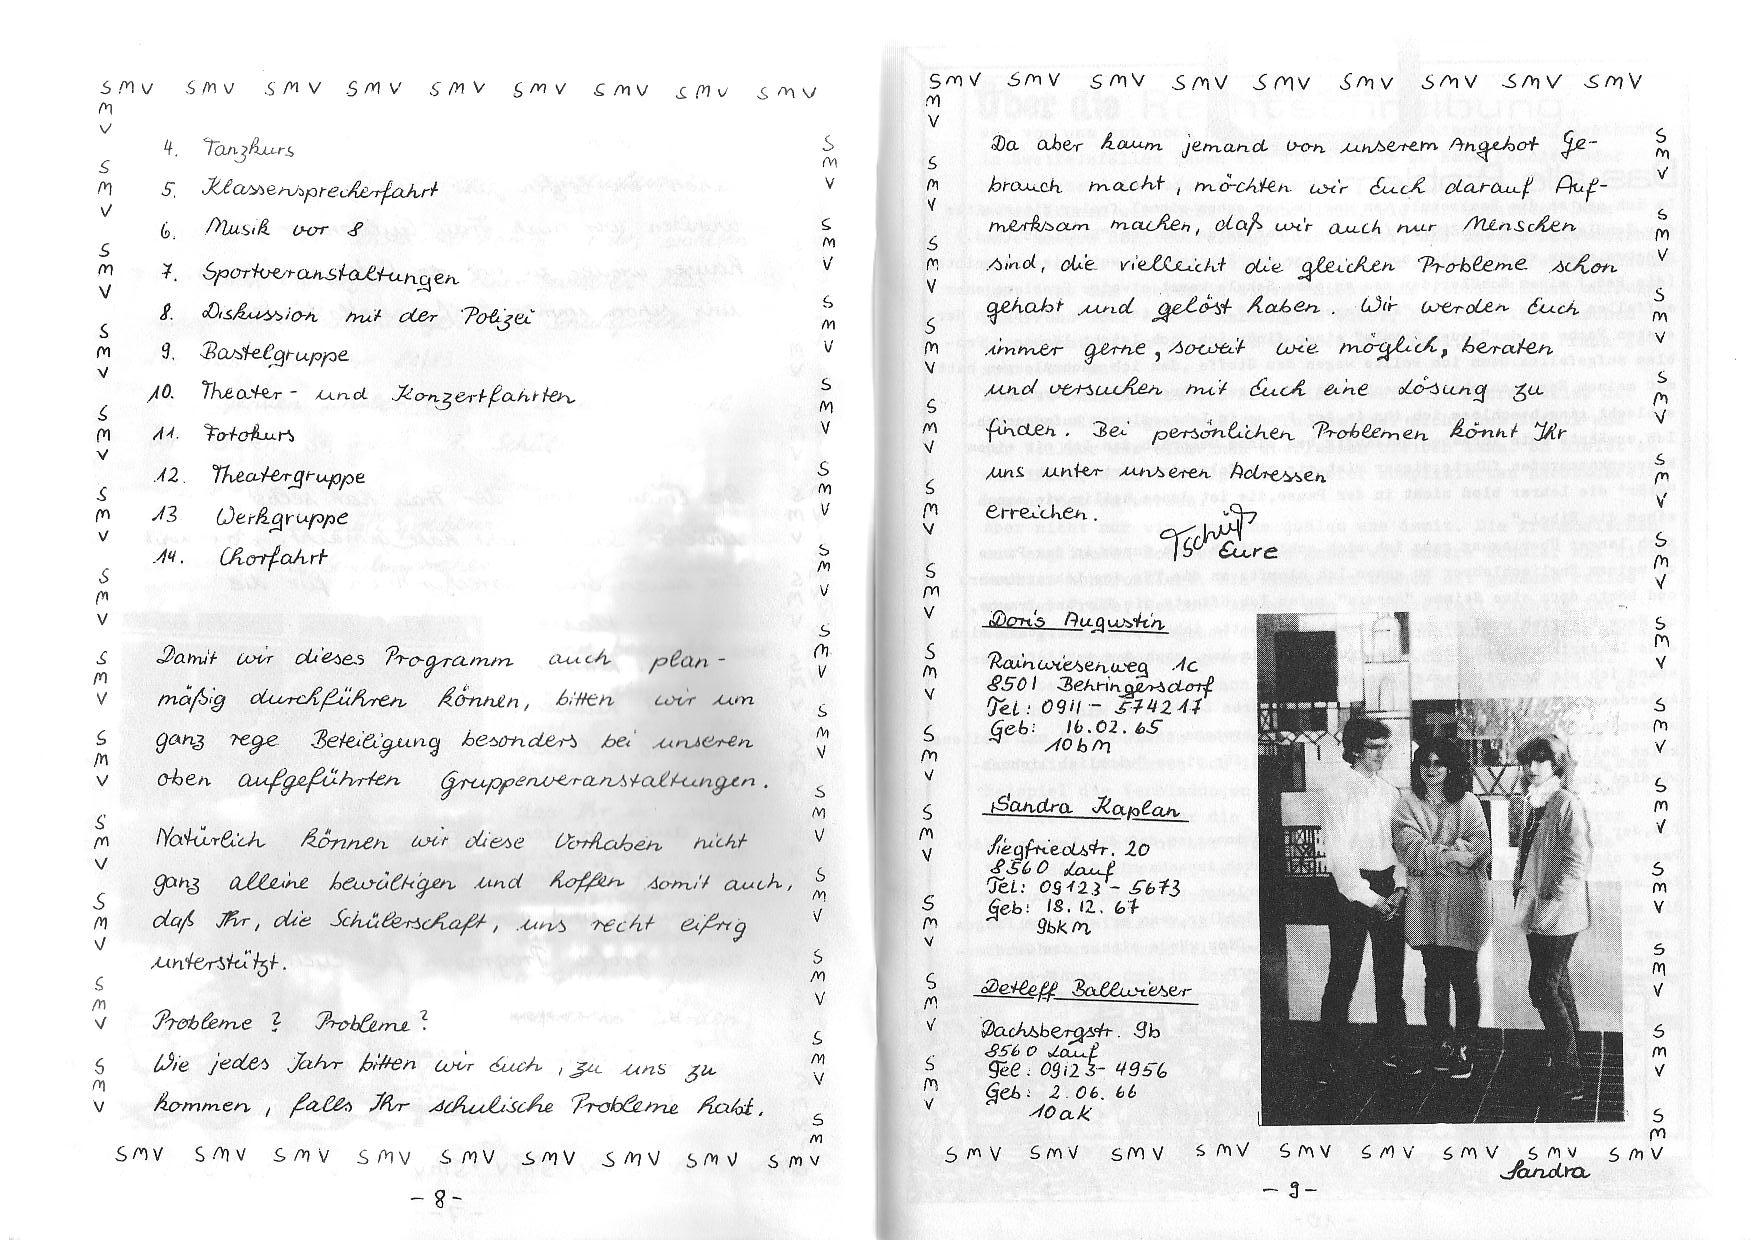 SMV SMV SMV SMV SMV SMV SMV SMV SMV
4. Tanzkurs
5. Klassensprecherfahrt
6. Musik vor 8
7. Sportveranstaltungen
8. Diskussion mit der Polizei
9. Bastelgruppe
10. Theater- und Konzertfahrten
11. Fotokurs
12. Theatergruppe
13 Werkgruppe
14. Chorfahrt
Damit wir dieses Programm auch plan-
mäßig durchführen können, bitten wir um
ganz rege Beteiligung besonders bei unseren
oben aufgeführten Gruppenveranstaltungen.
Natürlich können wir diese Vorhaben nicht
ganz alleine bewältigen und hoffen somit auch,
daß Ihr, die Schülerschaft, uns recht eifrig
unterstützt.
Probleme? Probleme?
Wie jedes Jahr bitten wir Euch, zu uns zu
kommen, falls Ihr schulische Probleme habt.
SMV SMV SMV SMV SMV SMV SMV SMV SMV
- 8 -
SMV SMV SMV SMV SMV SMV SMV SMV SMV
Da aber kaum jemand von unserem Angebot Ge-
brauch macht, möchten wir Euch darauf Auf-
merksam machen, daß wir auch nur Menschen
sind, die vielleicht die gleichen Probleme schon
gehabt und gelöst haben. Wir werden Euch
immer gerne, soweit wie möglich, beraten
und versuchen mit Euch eine Lösung zu
finden. Bei persönlichen Problemen könnt Ihr
uns unter unseren Adressen
erreichen.
Tschüß
Eure
Doris Augustin
Rainwiesenweg 1c
8501 Behringersdorf
Tel: 0911 - 574217
Geb: 16.02.65
10bm
Sandra Kaplan
Siegfriedstr. 20
8560 Lauf
Tel: 09123 - 5673
Geb: 18.12.67
9bkm
Detleff Ballwieser
Dachsbergstr. 9b
8560 Lauf
Tel: 09123 - 4956
Geb: 2.06.66
10ak
SMV SMV SMV SMV SMV SMV SMV SMV SMV
Sandra
- 9 -